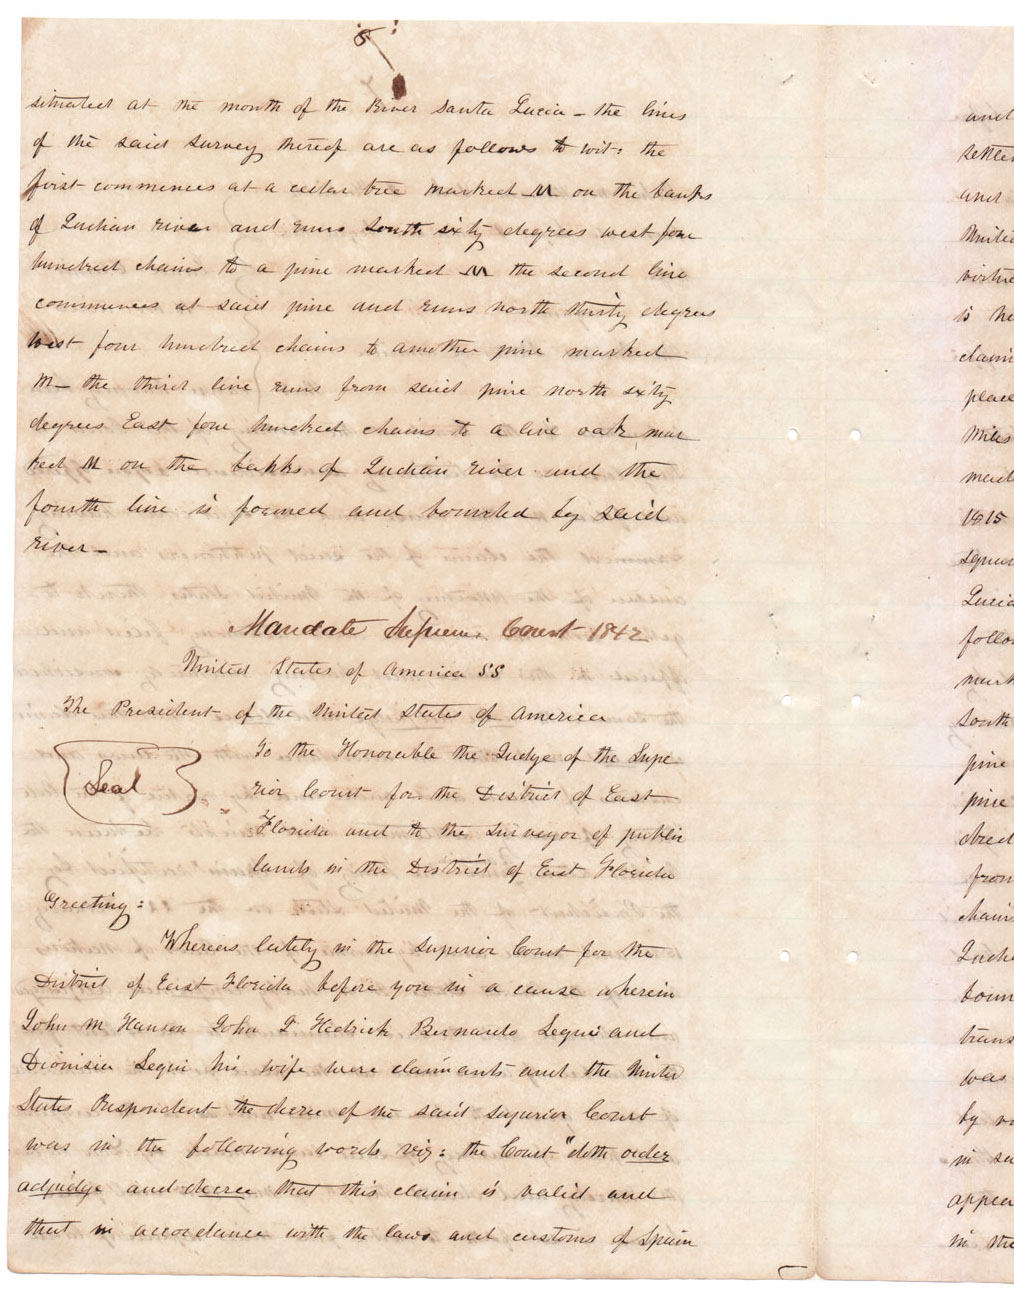 5
situated at the mouth of the River Santa Lucia – the lines
of the said survey thereof are as follows to wit: the
first commences at a cedar tree marked M on the banks
of Indian river and runs South sixty degrees west four
hundred chains to a pine marked M the second line
commences at said pine and runs north thirty degrees
west four hundred chains to another pine marked
M – the third line runs from said pine north sixty
degrees East four hundred chains to a live oak mar
ked M on the banks of Indian river and the
fourth line is formed and bounded by said
river –
Mandate Supreme Court 1842
United States of America SS
The President of the United States of America
Seal
To the Honorable the Judge of the Supe
rior Court for the District of East
Florida and to the Surveyor of public
lands in the District of East Florida
Greeting:
Whereas lately in the Superior Court for the
District of East Florida before you in a cause wherein
John M Hanson John T Hedrick Bernardo Segui and
Dionisia Segui his wife were claimants and the United
States Respondent the decree of the said Superior Court
was in the following words viz: the Court "doth order
adjudge and decree that this claim is valid and
that in accordance with the laws and customs of Spain
and
and
claim
place
miles
1815
follow
south
pine
pine
from
chains
was
in the